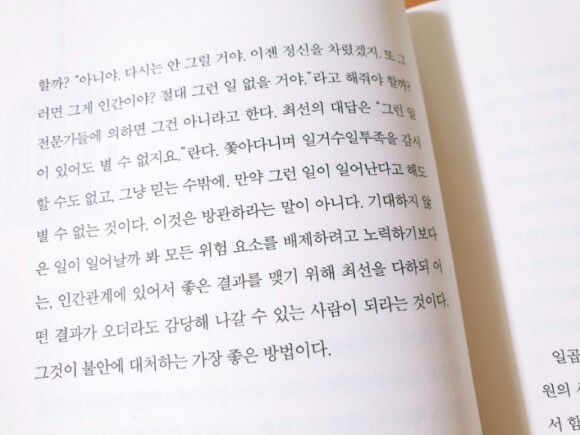 할까? “아니야. 다시는 안 그럴 거야. 이젠 정신을 차렸겠지. 또 그
러면 그게 인간이야? 절대 그런 일 없을 거야.”라고 해줘야 할까?
전문가들에 의하면 그건 아니라고 한다. 최선의 대답은 “그런 일
이 있어도 별 수 없지요.”란다. 쫓아다니며 일거수일투족을 감시
할 수도 없고, 그냥 믿는 수밖에. 만약 그런 일이 일어난다고 해도
별 수 없는 것이다. 이것은 방관하라는 말이 아니다. 기대하지 않
은 일이 일어날까 봐 모든 위험 요소를 배제하려고 노력하기보다
는, 인간관계에 있어서 좋은 결과를 맺기 위해 최선을 다하되 어
떤 결과가 오더라도 감당해 나갈 수 있는 사람이 되라는 것이다.
그것이 불안에 대처하는 가장 좋은 방법이다.
일곱
원의
서 함